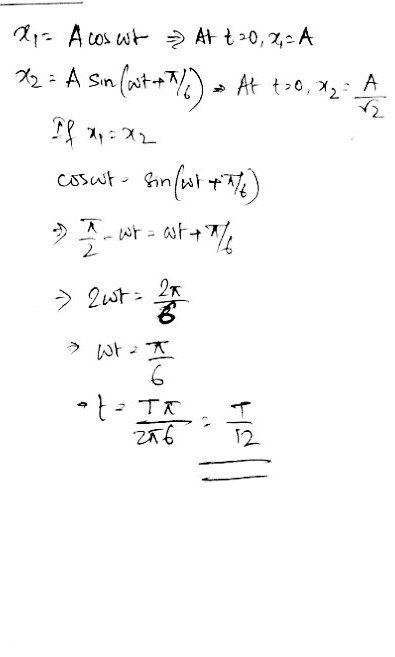 x₁ = A cos ωt ⇒ At t=0, x₁ = A
x₂ = A sin(ωt + π/6) ⇒ At t=0, x₂ = A/√2
If x₁ = x₂
cos ωt = sin(ωt + π/6)
⇒ π/2 - ωt = ωt + π/6
⇒ 2ωt = 2π/6
⇒ ωt = π/6
⇒ t = Tπ/2π6 = T/12